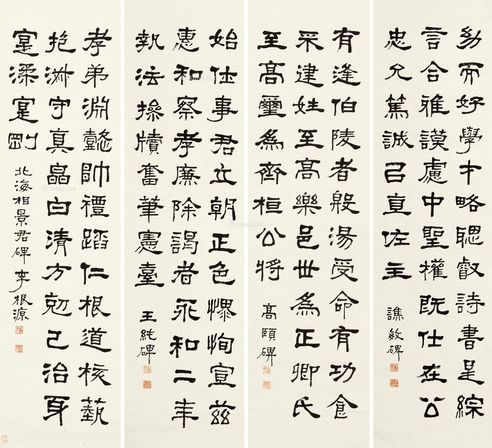 幼而好學才略聰叡詩書是綜
言合雅謨慮中聖權既仕在公
忠允篤誠㠯直佐主 譙敏碑
有逢伯陵者殷湯受命有功食
采建姓至高樂邑世為正卿氏
至高璽為齊桓公將 高頤碑
始仕事君立朝正色慓恂宣茲
惠和察孝廉除謁者永和二年
執法操牘奮筆憲臺 王純碑
孝弟淵懿帥禮蹈仁根道核藝
抱淑守真皛白清方剋己治身
寔渘寔剛 北海相景君碑 李根源